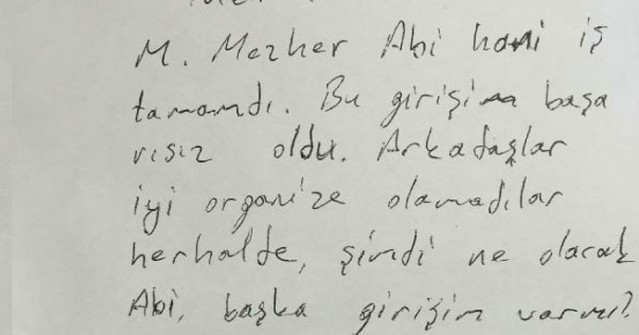 M. Mazher Abi hani iş
tamamdı. Bu girişim başa
rısız oldu. Arkadaşlar
iyi organize olamadılar
herhalde, şimdi ne olacak
Abi, başka girişim varmı?